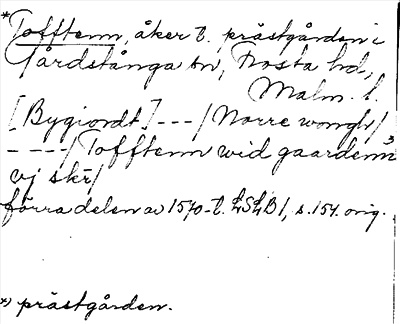 *Tofftenn, åker t. prästgården i
Gårdstånga sn, Frosta hd,
Malm. l.
[Bygiordt] --- / Norre wongh /
- --- / Tofftenn wid gaardenn x)
vj skr /
förra delen av 1570-t. LSLB 1, s. 154. orig.
x) prästgården.